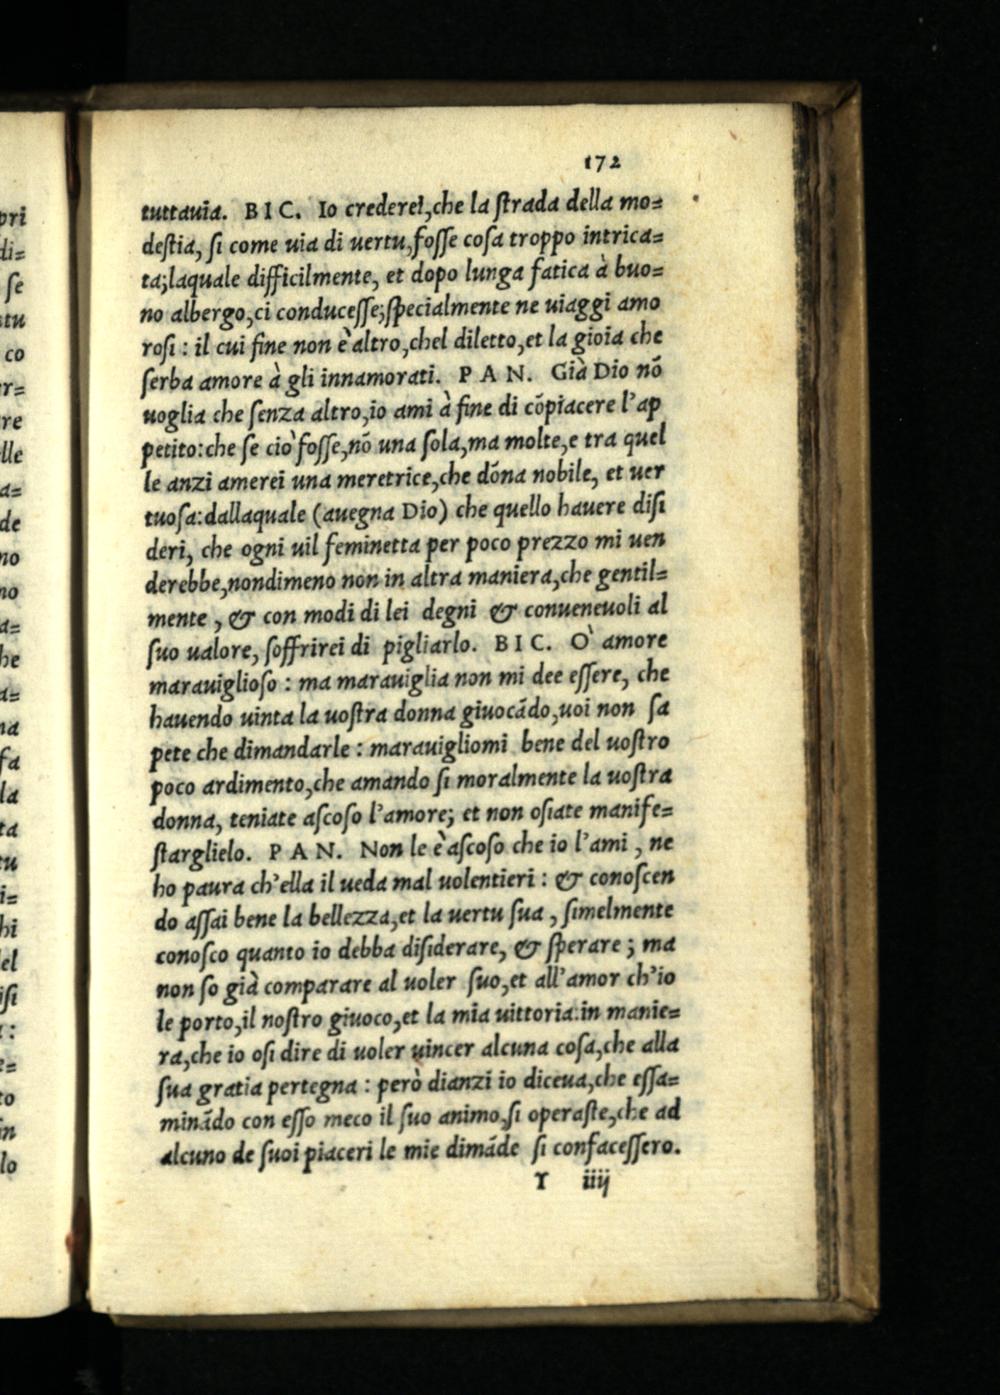 172
tuttauia. BIC. Io crederei,che la strada della mo=
destia, si come uia di uertu,fosse cosa troppo intrica=
ta;laquale difficilmente, et dopo lunga fatica à buo=
no albergo,ci conducesse;specialmente ne uiaggi amo
rosi : il cui fine non è altro,chel diletto,et la gioia che
serba amore à gli innamorati. PAN. Già Dio nõ
uoglia che senza altro,io ami à fine di cõpiacere l'ap
petito:che se ciò fosse,nõ una sola,ma molte,e tra quel
le anzi amerei una meretrice,che dõna nobile, et uer
tuosa:dallaquale (auegna Dio) che quello hauere disi
deri, che ogni uil feminetta per poco prezzo mi uen
derebbe,nondimeno non in altra maniera,che gentil=
mente , & con modi di lei degni & conueneuoli al
suo ualore, soffrirei di pigliarlo. BIC. O' amore
marauiglioso : ma marauiglia non mi dee essere, che
hauendo uinta la uostra donna giuocãdo,uoi non sa
pete che dimandarle : marauigliomi bene del uostro
poco ardimento,che amando si moralmente la uostra
donna, teniate ascoso l'amore; et non osiate manife=
starglielo. PAN. Non le è ascoso che io l'ami , ne
ho paura ch'ella il ueda mal uolentieri : & conoscen
do assai bene la bellezza,et la uertu sua , simelmente
conosco quanto io debba disiderare, & sperare ; ma
non so già comparare al uoler suo,et all'amor ch'io
le porto,il nostro giuoco,et la mia uittoria:in manie=
ra,che io osi dire di uoler uincer alcuna cosa,che alla
sua gratia pertegna : però dianzi io diceua,che essa=
minãdo con esso meco il suo animo,si operaste,che ad
alcuno de suoi piaceri le mie dimãde si confacessero.
Y iiij
pri
di=
se
tu
co
er=
re
lle
a=
de
no
no
a=
he
a=
na
fa
la
ta
tu
i=
hi
el
isi
:
e=
to
in
lo